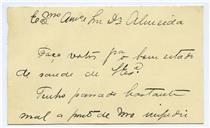 Exmo Amo e Snr Dr Almeida
Faço votos pa o bom estado
de saude de V. Exa
Tenho passado bastante
mal a ponto de me impedir